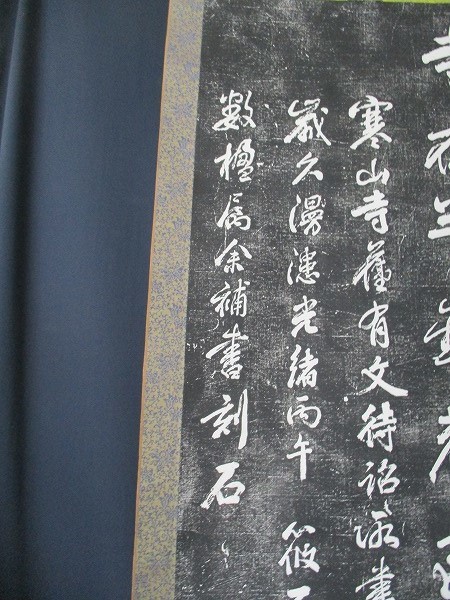 寒山寺舊有文待詔所書
歲久漫漶光緒丙午 筱
數楹屬余補書刻石